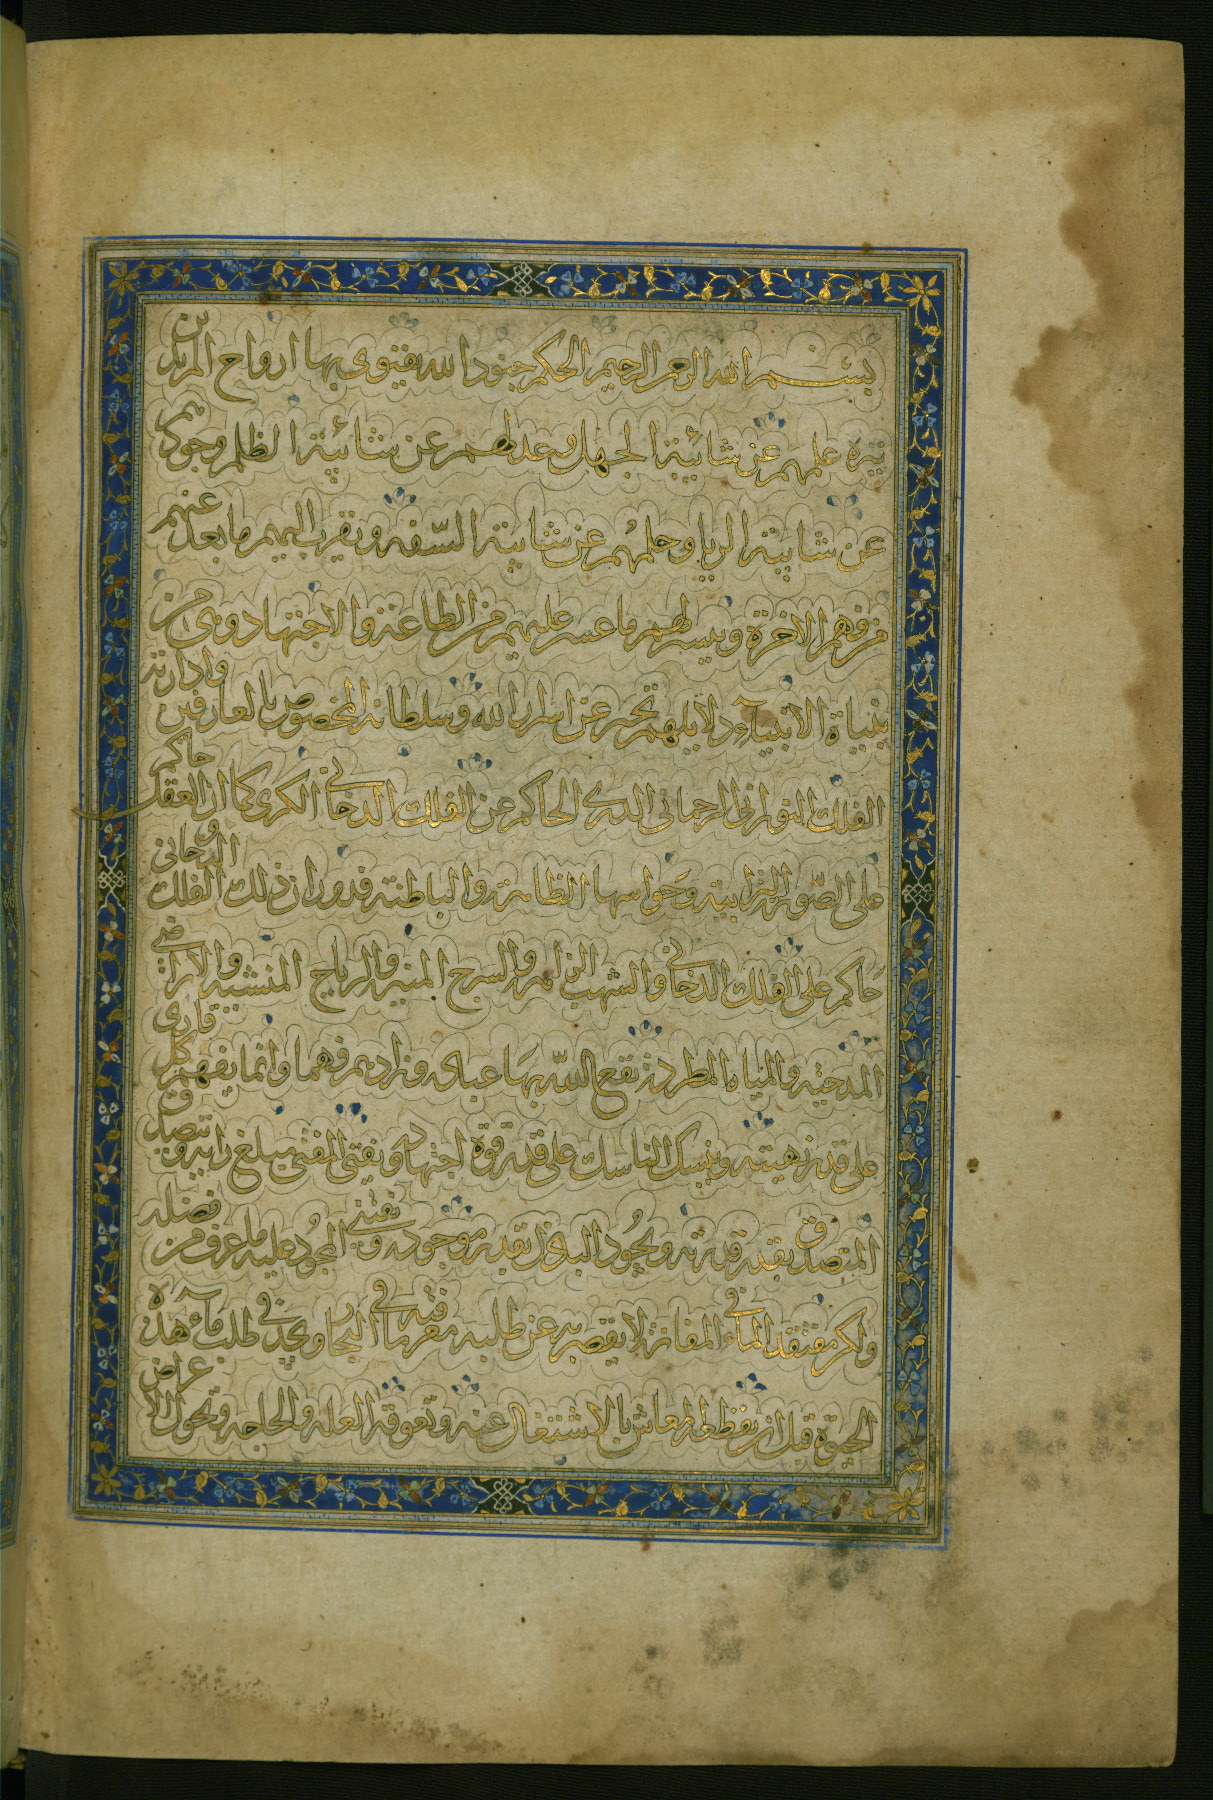 بسم الله الرحمن الرحيم الحكم جنود الله يقوى بها ارواح المريدين
ينزه علمهم عن شائبة الجهل وعدلهم عن شائبة الظلم وجودهم
عن شائبة الريا وحلمهم عن شائبة السّفه ويقرب اليهم ما بعد عنهم
من فهم الاخرة وييسر لهم ما عسر عليهم من الطاعة والاجتهاد وهى من
بنياة الانبيآء ودلايلهم تخبر عن اسرار الله وسلطانه المخصوص بالعارفين وادارته
الفلك النورانى الرحمانى الدرى الحاكم عن الفلك الدخانى الكرى كما ان العقل حاكم
على الصّور الترابية وحواسها الظاهرة والباطنة فدوران ذلك الفلك الروحانى
حاكم على الفلك الدخانى والشهب الزواهر والسرج المنيرة والرياح المنشية والاراضى
المدحية والمياه المطردة نفع الله بها عباده وزادهم فهما وانما يفهم كل قارى
على قدر نهيته وينسك الناسك على قدر قوة اجتهاده ويفتى المفتى مبلغ رايه ويتصدق
المتصدق بقدر قدرته ويجود الباذل بقدر موجوده ويقتنى المجود عليه ما عرف من فضله
ولكن مفتقد الماء فى المفازة لا يقصر به عن طلبه معرفته ما فى البحار ويجد فى طلب ماء هذه
الحيوة قبل ان يقطعه المعاش بالاشتغال عنه وتعوقه العلة والحاجة وتحول الاعراض